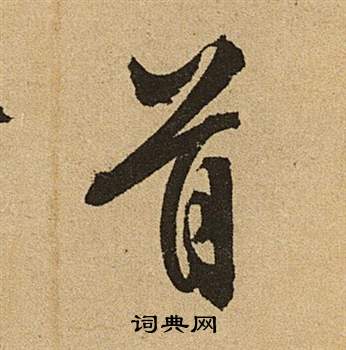 首
词典网